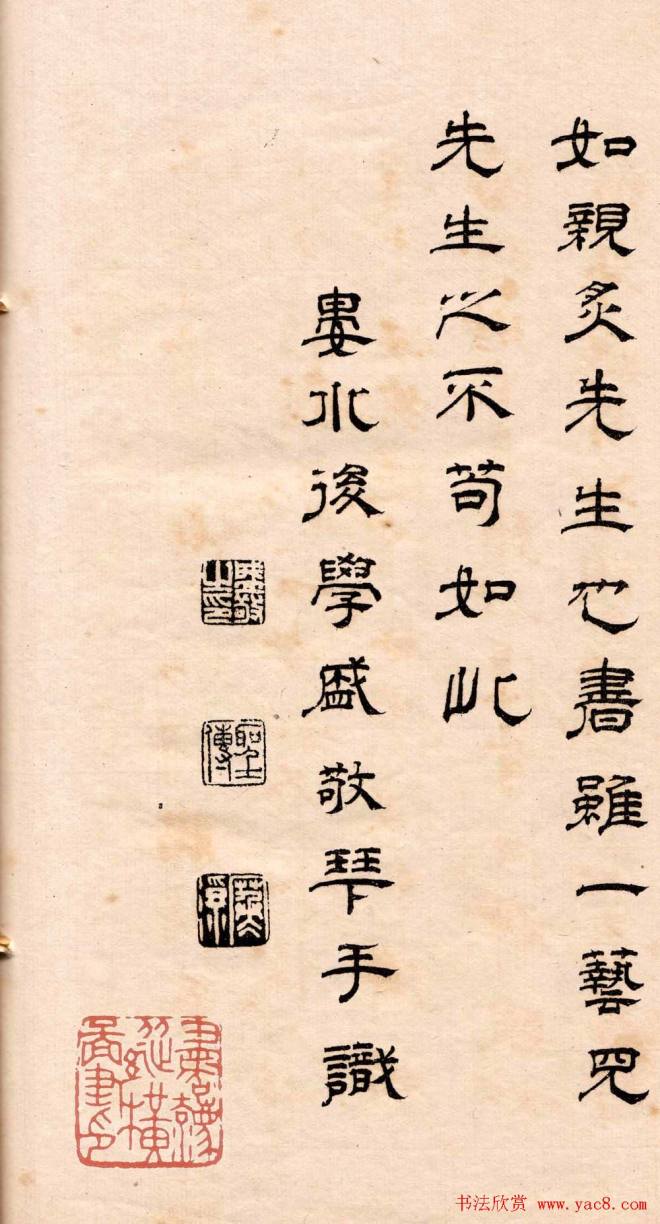 如親炙先生也書雖一藝見
先生之不苟如此
婁水後學盛敬拜手識
聖傳
书法欣赏 www.yac8.com